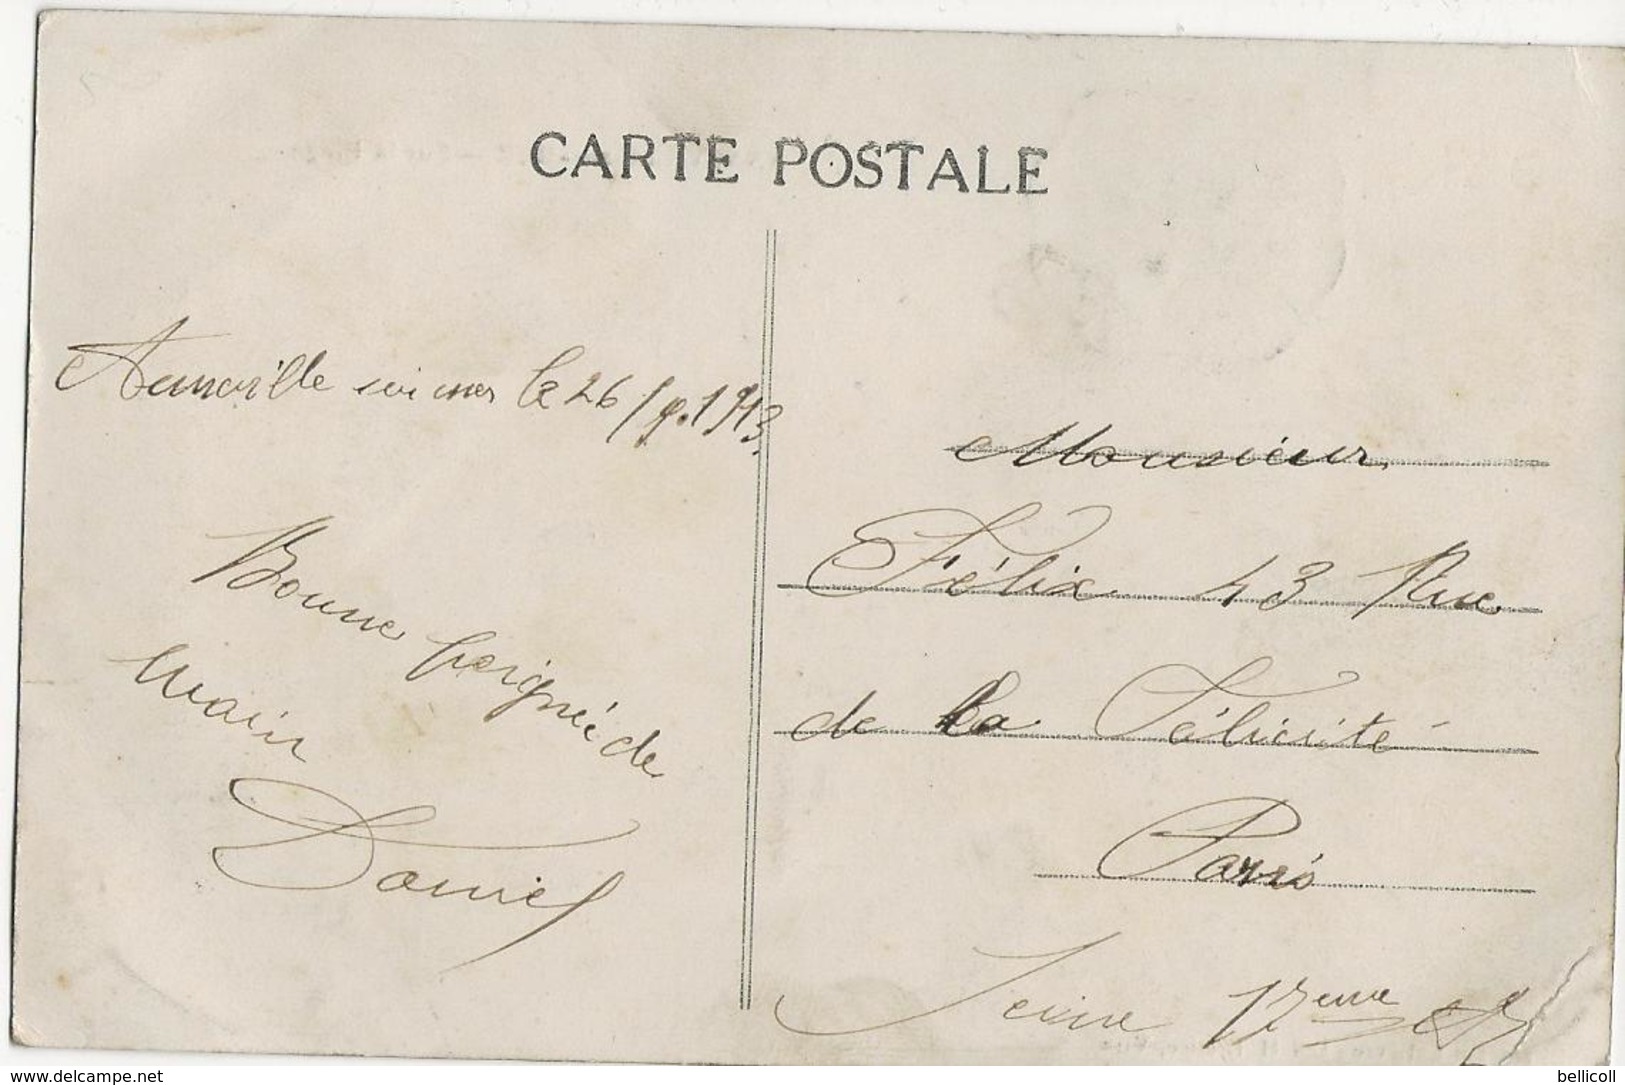 CARTE POSTALE
le 26/9.1913
Bonne poignée de
main
Daniel
Monsieur
Félix 43 Rue
de la Félicité
Paris
Seine 17eme
delcampe.net
bellicoll